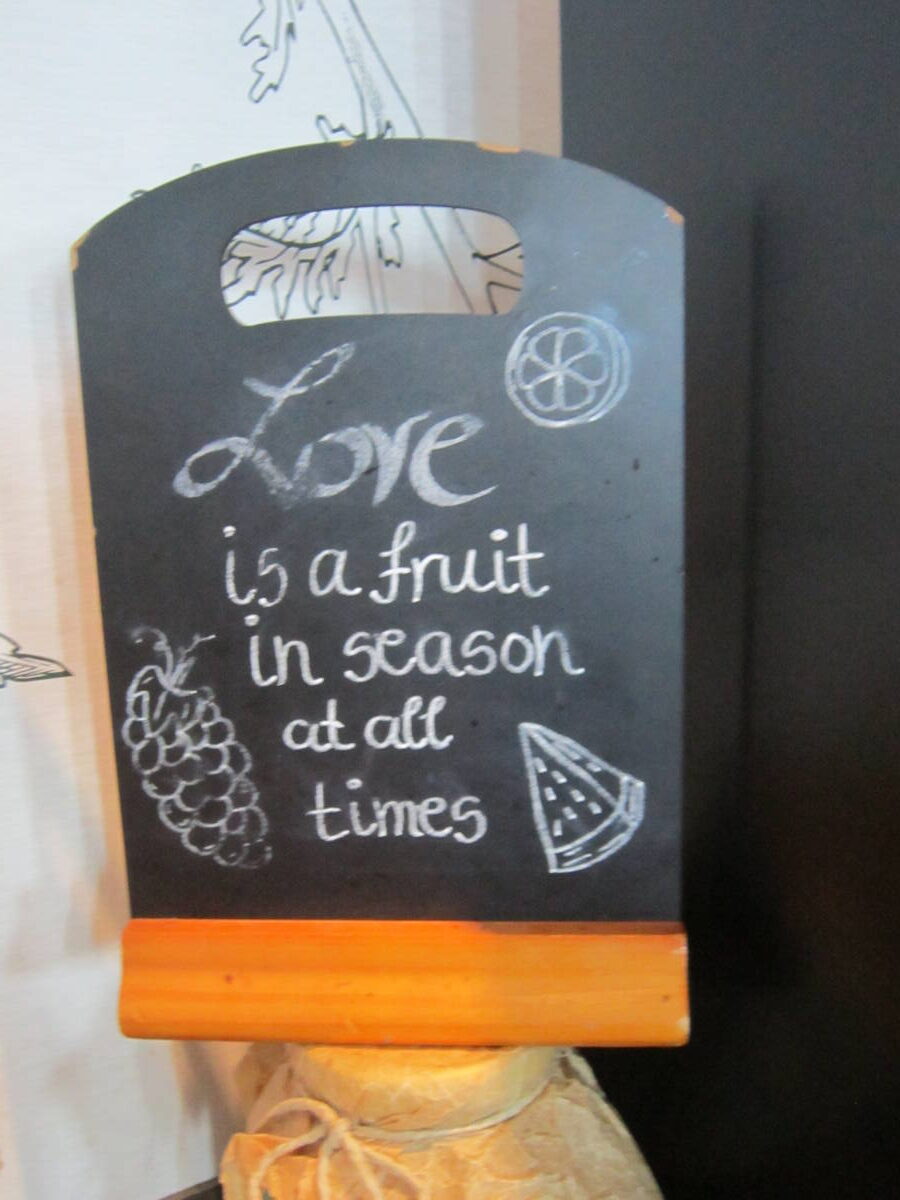 Love
is a fruit
in season
at all
times